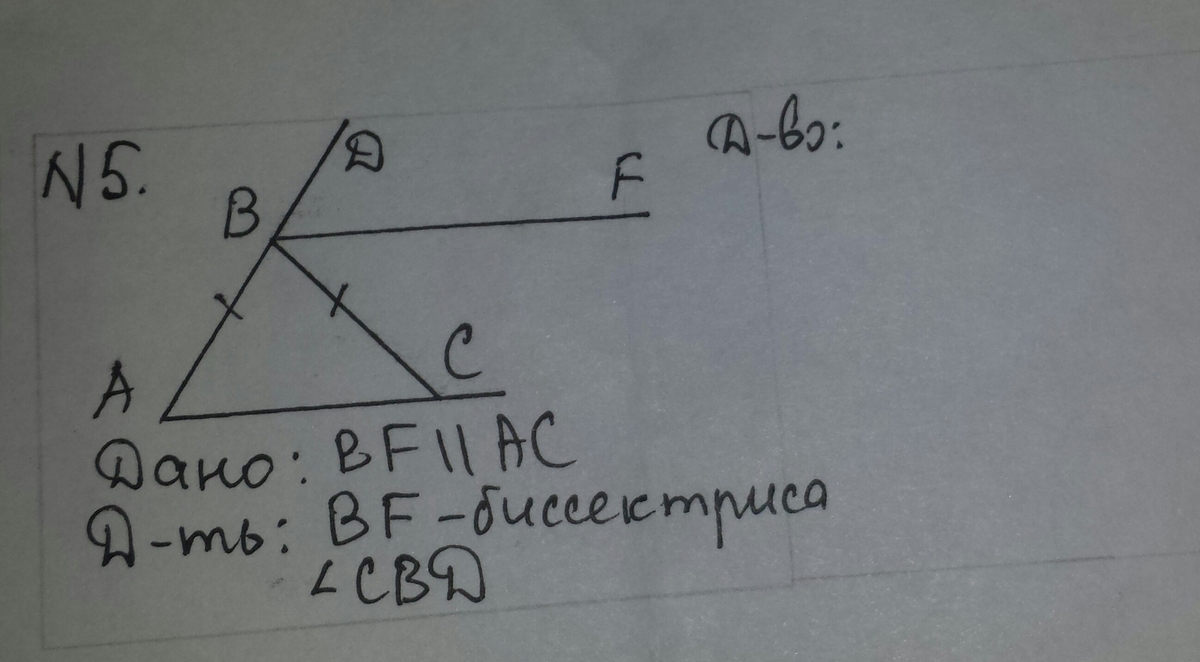 N5.
Д
B
F
Д-во:
A
C
Дано: BF || AC
Д-ть: BF - биссектриса
∠CBД